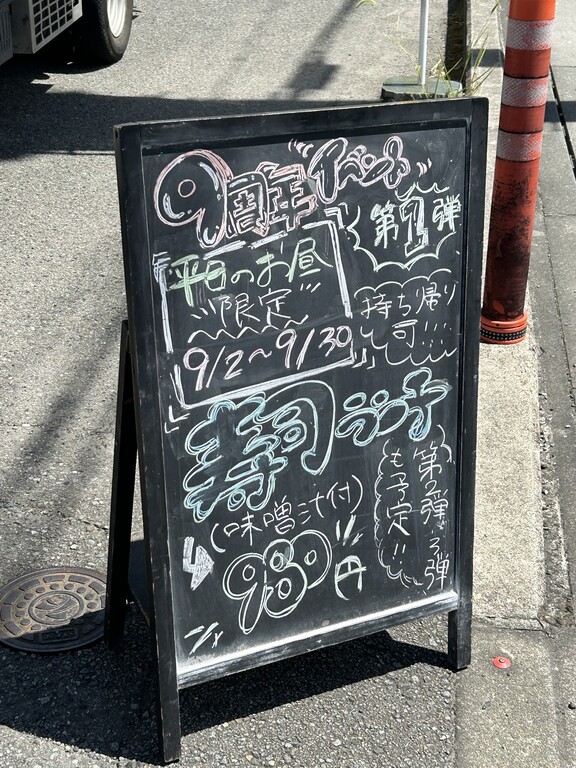 9周年イベント
第1弾
平日のお昼
限定
9/2～9/30
持ち帰り
可!!!!
寿司ランチ
(味噌汁付)
980円
第2弾・3弾
も予定!!